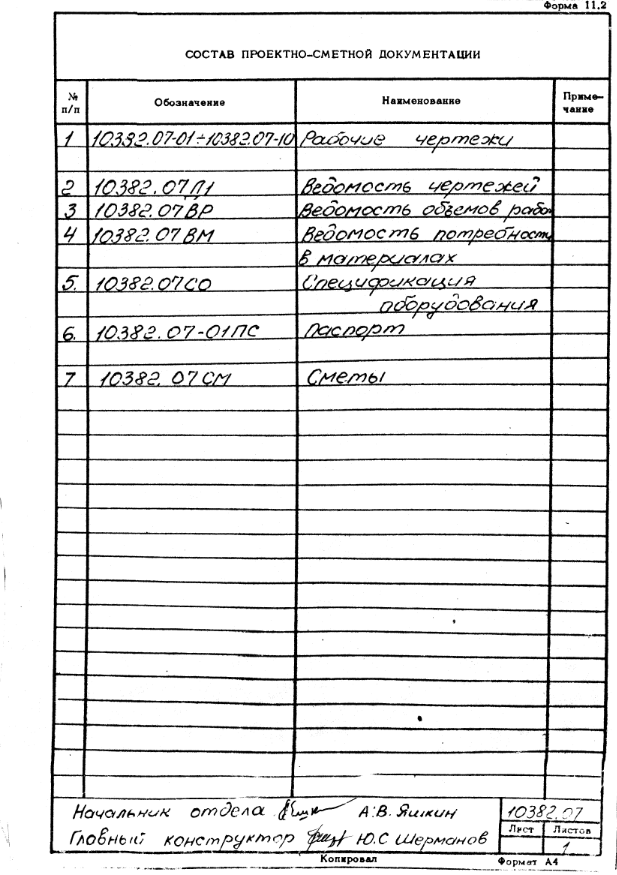 Форма 11.2
СОСТАВ ПРОЕКТНО-СМЕТНОЙ ДОКУМЕНТАЦИИ
№ п/п Обозначение Наименование Приме-чание
1 10382.07-01÷10382.07-10 Рабочие чертежи
2 10382.07Л1 Ведомость чертежей
3 10382.07ВР Ведомость объемов рабо
4 10382.07ВМ Ведомость потребност
в материалах
5. 10382.07СО Спецификация
оборудования
6. 10382.07-01ПС Паспорт
7 10382.07СМ Сметы
Начальник отдела А.В. Яшкин 10382.07
Лист Листов
Главный конструктор Ю.С Шерманов 1
Копировал Формат А4